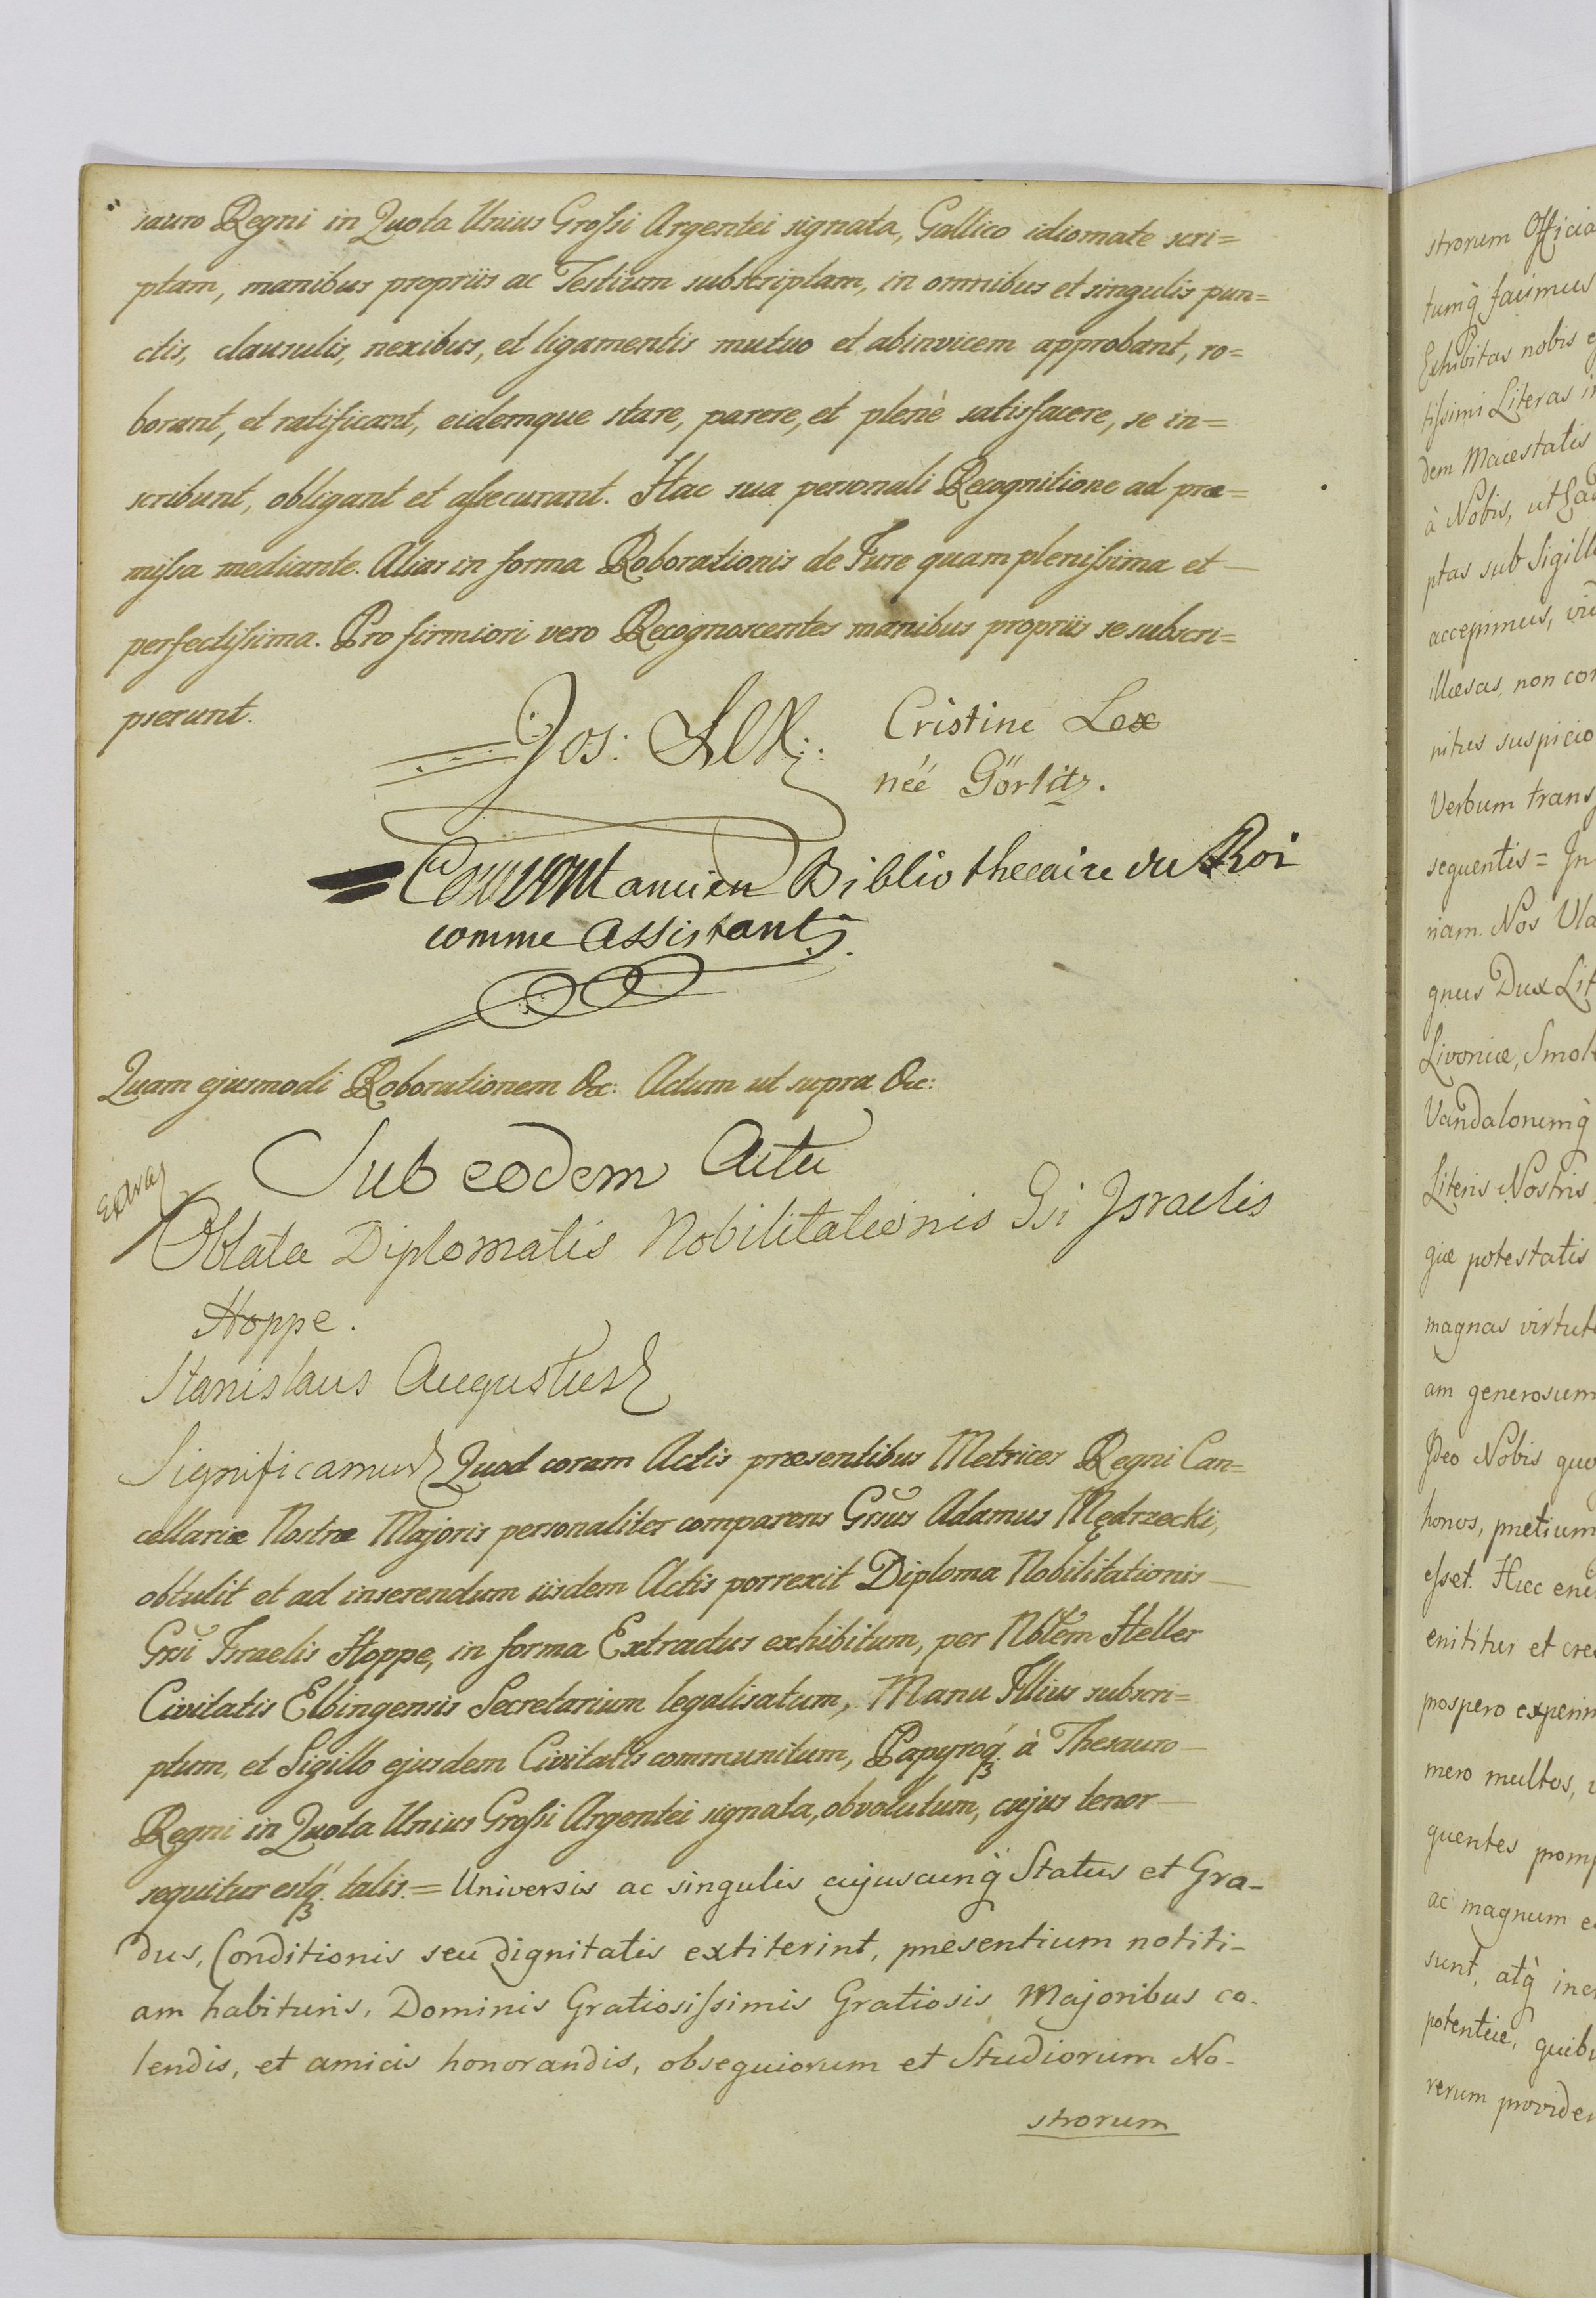 sauro Regni in Quota Unius Grossi Argentei signata, Gallico idiomate scri=
ptam, manibus propriis ac Testium subscriptam, in omnibus et singulis pun=
ctis, clausulis, nexibus, et ligamentis mutuo et abinvicem approbant, ro=
borant, et ratificant, eidemque stare, parere, et plenè satisfacere, se in=
scribunt, obligant et assecurant. Hac sua personali Recognitione ad præ=
missa mediante. Alias in forma Roborationis de Jure quam plenissima et
perfectissima. Pro firmiori vero Recognoscentes manibus propriis se subscri=
pserunt.
Jos: Lex
Cristine Lex
néé Görlitz.
ancien Bibliothecaire du Roi
comme Assistant
Quam ejusmodi Roborationem &c: Actum ut supra &c:
Sub eodem Actu
Oblata Diplomatis Nobilitationis Gsi Israelis
Hoppe.
Stanislaus Augustus
Significamus Quod coram Actis præsentibus Metrices Regni Can=
cellariæ Nostræ Majoris personaliter comparens Grsus Adamus Mędrzecki,
obtulit et ad inserendum iisdem Actis porrexit Diploma Nobilitationis
Grsi Israelis Hoppe, in forma Extractus exhibitum, per Nbtem Heller
Civitatis Elbingensis Secretarium legalisatum, Manu Illius subscri=
ptum, et Sigillo ejusdem Civitatis communitum, Papyroq3 à Thesauro
Regni in Quota Unius Grossi Argentei signata, obvolutum, cujus tenor
sequitur estq3 talis = Universis ac singulis cujuscunq̀ Status et Gra-
dus, Conditionis seu dignitatis extiterint, præsentium notiti-
am habituris, Dominis Gratiosissimis Gratiosis Majoribus co-
lendis, et amicis honorandis, obsequiorum et Studiorum No-
strorum
strorum Officio
tumq̀ facimus
Exhibitas nobis
tissimi Literas
dem Maiestatis
à Nobis, ut
ptas sub Sigill
accepimus,
illæsas, non
nitus suspicio
Verbum trans
sequentis = In
niam. Nos Vla
gnus Dux Lit
Livoniæ, Smol
Vandalorumq̀
Literis Nostris
giæ potestatis
magnas virtut
am generosum
Deo Nobis
honos, pretium
esset. Hæc
enititur et cre
prospero experim
mero multos,
quentes promp
ac magnum
sunt, atq̀
potentiæ, quib
rerum provide